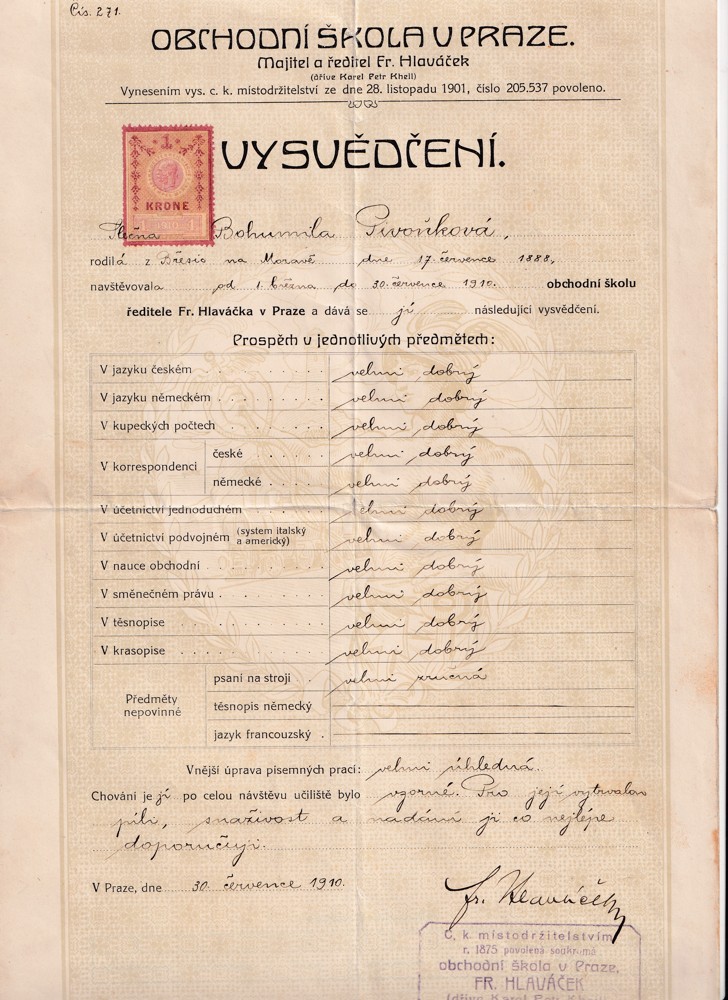 Čís. 271.
OBCHODNÍ ŠKOLA V PRAZE.
Majitel a ředitel Fr. Hlaváček
(dříve Karel Petr Kheil)
Vynesením vys. c. k. místodržitelství ze dne 28. listopadu 1901, číslo 205.537 povoleno.
1
KRONE
VYSVĚDČENÍ.
Slečna Bohumila Pivoňková,
rodilá z Břesic na Moravě dne 17. července 1888,
navštěvovala od 1. března do 30. července 1910. obchodní školu
ředitele Fr. Hlaváčka v Praze a dává se jí následující vysvědčení.
Prospěch v jednotlivých předmětech:
V jazyku českém velmi dobrý
V jazyku německém velmi dobrý
V kupeckých počtech velmi dobrý
V korrespondenci české velmi dobrý
německé velmi dobrý
V účetnictví jednoduchém velmi dobrý
V účetnictví podvojném (system italský a americký) velmi dobrý
V nauce obchodní velmi dobrý
V směnečném právu velmi dobrý
V těsnopise velmi dobrý
V krasopise velmi dobrý
Předměty nepovinné psaní na stroji velmi zručná
těsnopis německý
jazyk francouzský
Vnější úprava písemných prací: velmi úhledná.
Chování je jí po celou návštěvu učiliště bylo vzorné. Pro její vytrvalou
píli, snaživost a nadání ji co nejlépe
doporučuji.
V Praze, dne 30. července 1910.
Fr. Hlaváček
C. k. místodržitelstvím
r. 1875 povolená soukromá
obchodní škola v Praze,
FR. HLAVÁČEK
(dříve Karel Petr Kheil)